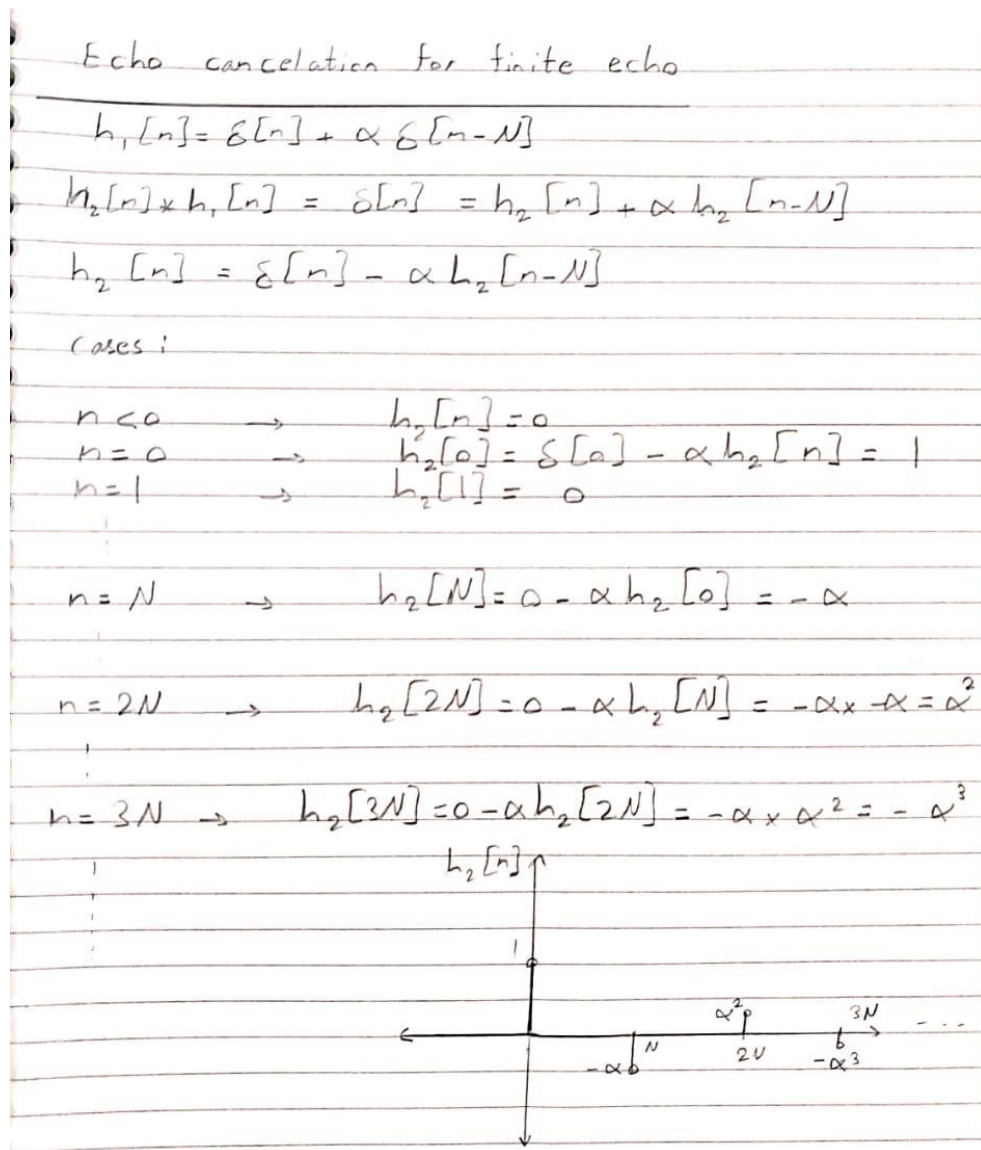 Echo cancelation for finite echo
h₁[n] = δ[n] + α δ[n-N]
h₂[n] * h₁[n] = δ[n] = h₂[n] + α h₂[n-N]
h₂[n] = δ[n] - α h₂[n-N]
Cases :
n<0 → h₂[n] = 0
n=0 → h₂[0] = δ[0] - α h₂[n] = 1
n=1 → h₂[1] = 0
n=N → h₂[N] = 0 - α h₂[0] = - α
n=2N → h₂[2N] = 0 - α h₂[N] = -α x -α = α²
n=3N → h₂[3N] = 0 - α h₂[2N] = -α x α² = - α³
h₂[n]
1
α² 3N ...
N 2N
-α -α³